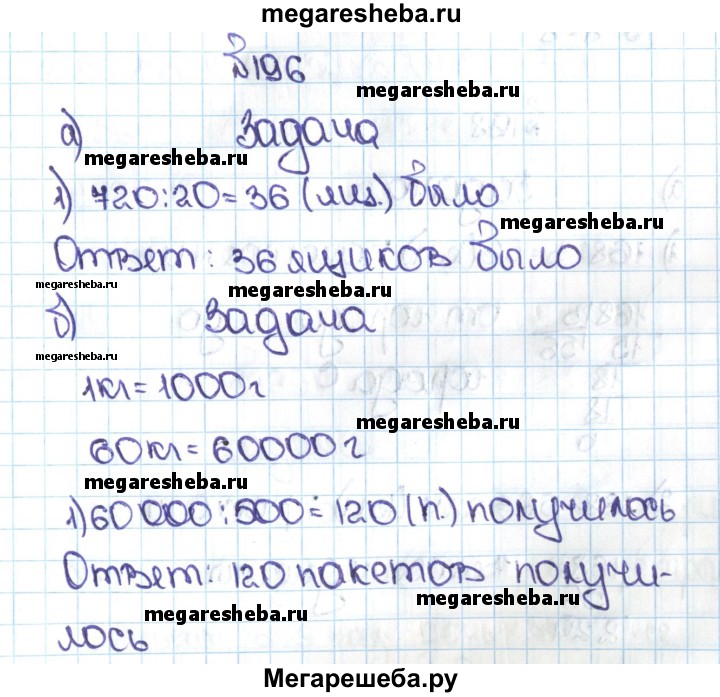 megaresheba.ru
№196
megaresheba.ru
а) Задача
megaresheba.ru
1) 720:20=36 (ящ.) было
megaresheba.ru
Ответ: 36 ящиков было
megaresheba.ru
megaresheba.ru
б) Задача
megaresheba.ru
1кг=1000г
megaresheba.ru
60кг=60000г
megaresheba.ru
1) 60 000:500=120 (п.) получилось
megaresheba.ru
Ответ: 120 пакетов получи-
megaresheba.ru
megaresheba.ru
лось
Мегарешеба.ру